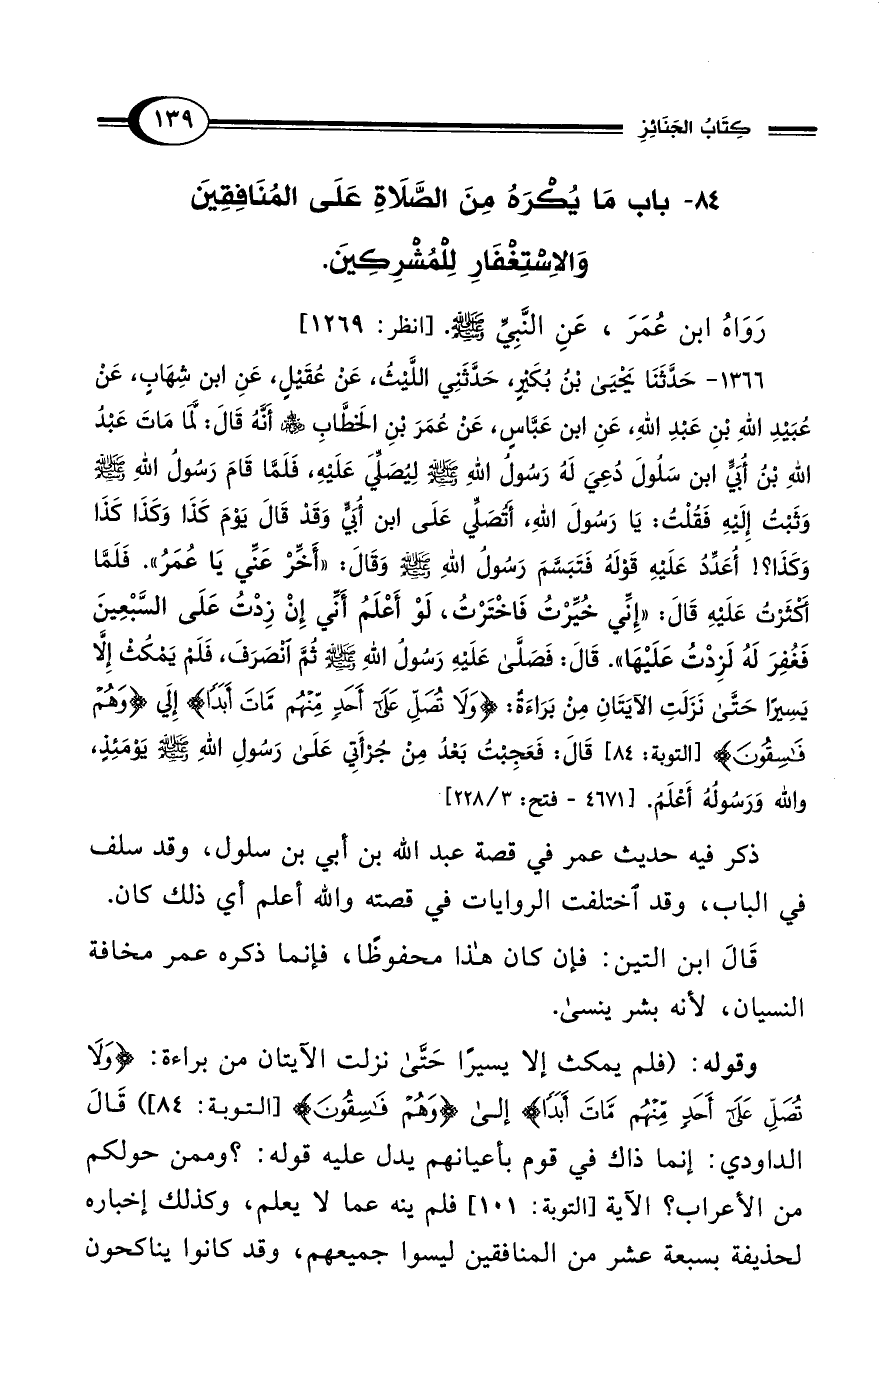 كِتَابُ الجَنَائِزِ
١٣٩
٨٤- باب مَا يُكْرَهُ مِنَ الصَّلَاةِ عَلَى المُنَافِقِينَ
وَالاِسْتِغْفَارِ لِلْمُشْرِكِينَ.
رَوَاهُ ابن عُمَرَ ، عَنِ النَّبِيِّ ﷺ. [انظر: ١٢٦٩]
١٣٦٦- حَدَّثَنَا يَحْيَىٰ بْنُ بُكَيْرٍ، حَدَّثَنِي اللَّيْثُ، عَنْ عُقَيْلٍ، عَنِ ابن شِهَابٍ، عَنْ
عُبَيْدِ اللهِ بْنِ عَبْدِ اللهِ، عَنِ ابن عَبَّاسٍ، عَنْ عُمَرَ بْنِ الخَطَّابِ ﷺ أَنَّهُ قَالَ: لَمَّا مَاتَ عَبْدُ
اللهِ بْنُ أُبَيٍّ ابن سَلُولَ دُعِيَ لَهُ رَسُولُ اللهِ ﷺ لِيُصَلِّيَ عَلَيْهِ، فَلَمَّا قَامَ رَسُولُ اللهِ ﷺ
وَثَبْتُ إِلَيْهِ فَقُلْتُ: يَا رَسُولَ اللهِ، أَتُصَلِّي عَلَى ابن أُبَيٍّ وَقَدْ قَالَ يَوْمَ كَذَا وَكَذَا كَذَا
وَكَذَا؟! أُعَدِّدُ عَلَيْهِ قَوْلَهُ فَتَبَسَّمَ رَسُولُ اللهِ ﷺ وَقَالَ: «أَخِّرْ عَنِّي يَا عُمَرُ». فَلَمَّا
أَكْثَرْتُ عَلَيْهِ قَالَ: «إِنِّي خُيِّرْتُ فَاخْتَرْتُ، لَوْ أَعْلَمُ أَنِّي إِنْ زِدْتُ عَلَى السَّبْعِينَ
فَغُفِرَ لَهُ لَزِدْتُ عَلَيْهَا». قَالَ: فَصَلَّىٰ عَلَيْهِ رَسُولُ اللهِ ﷺ ثُمَّ ٱنْصَرَفَ، فَلَمْ يَمْكُثْ إِلَّا
يَسِيرًا حَتَّىٰ نَزَلَتِ الآيَتَانِ مِنْ بَرَاءَةٌ: ﴿وَلَا تُصَلِّ عَلَىٰٓ أَحَدٍ مِّنْهُم مَّاتَ أَبَدًا﴾ إِلَي ﴿وَهُمْ
فَـٰسِقُونَ﴾ [التوبة: ٨٤] قَالَ: فَعَجِبْتُ بَعْدُ مِنْ جُرْأَتِي عَلَىٰ رَسُولِ اللهِ ﷺ يَوْمَئِذٍ،
والله وَرَسُولُهُ أَعْلَمُ. [٤٦٧١ - فتح: ٣/ ٢٢٨]
ذكر فيه حديث عمر في قصة عبد الله بن أبي بن سلول، وقد سلف
في الباب، وقد ٱختلفت الروايات في قصته والله أعلم أي ذلك كان.
قَالَ ابن التين: فإن كان هذا محفوظًا، فإنما ذكره عمر مخافة
النسيان، لأنه بشر ينسىٰ.
وقوله: (فلم يمكث إلا يسيرًا حَتَّىٰ نزلت الآيتان من براءة: ﴿وَلَا
تُصَلِّ عَلَىٰٓ أَحَدٍ مِّنْهُم مَّاتَ أَبَدًا﴾ إلىٰ ﴿وَهُمْ فَـٰسِقُونَ﴾ [التوبة: ٨٤]) قَالَ
الداودي: إنما ذاك في قوم بأعيانهم يدل عليه قوله: ?وممن حولكم
من الأعراب? الآية [التوبة: ١٠١] فلم ينه عما لا يعلم، وكذلك إخباره
لحذيفة بسبعة عشر من المنافقين ليسوا جميعهم، وقد كانوا يناكحون